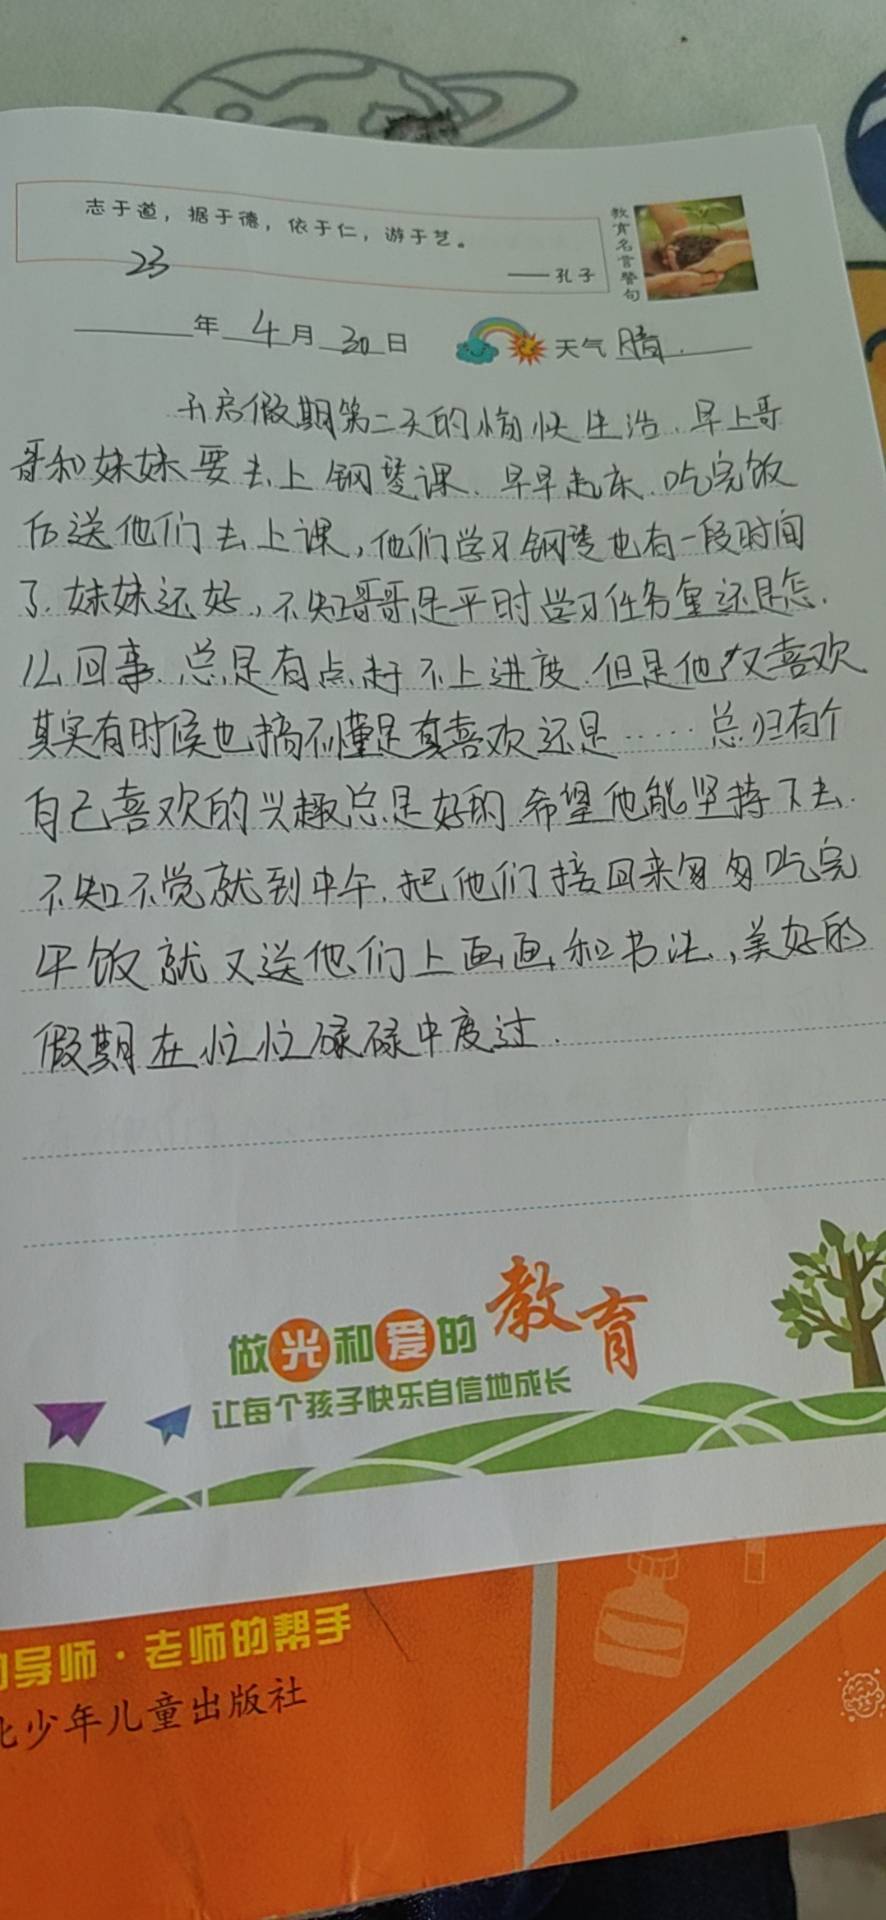 志于道，据于德，依于仁，游于艺。
——孔子
教育名言警句
23
年 4月 30日 天气 晴.
开启假期第二天的愉快生活.早上哥
哥和妹妹要去上钢琴课.早早起床.吃完饭
后送他们去上课,他们学习钢琴也有一段时间
了.妹妹还好,不知哥哥是平时学习任务重还是怎.
么回事.总是有点赶不上进度.但是他又喜欢
其实有时候也搞不懂是真喜欢还是……总归有个
自己喜欢的兴趣总是好的.希望他能坚持下去.
不知不觉就到中午.把他们接回来匆匆吃完
午饭就又送他们上画画和书法,美好的
假期在忙忙碌碌中度过.
做光和爱的教育
让每个孩子快乐自信地成长
导师·老师的帮手
少年儿童出版社